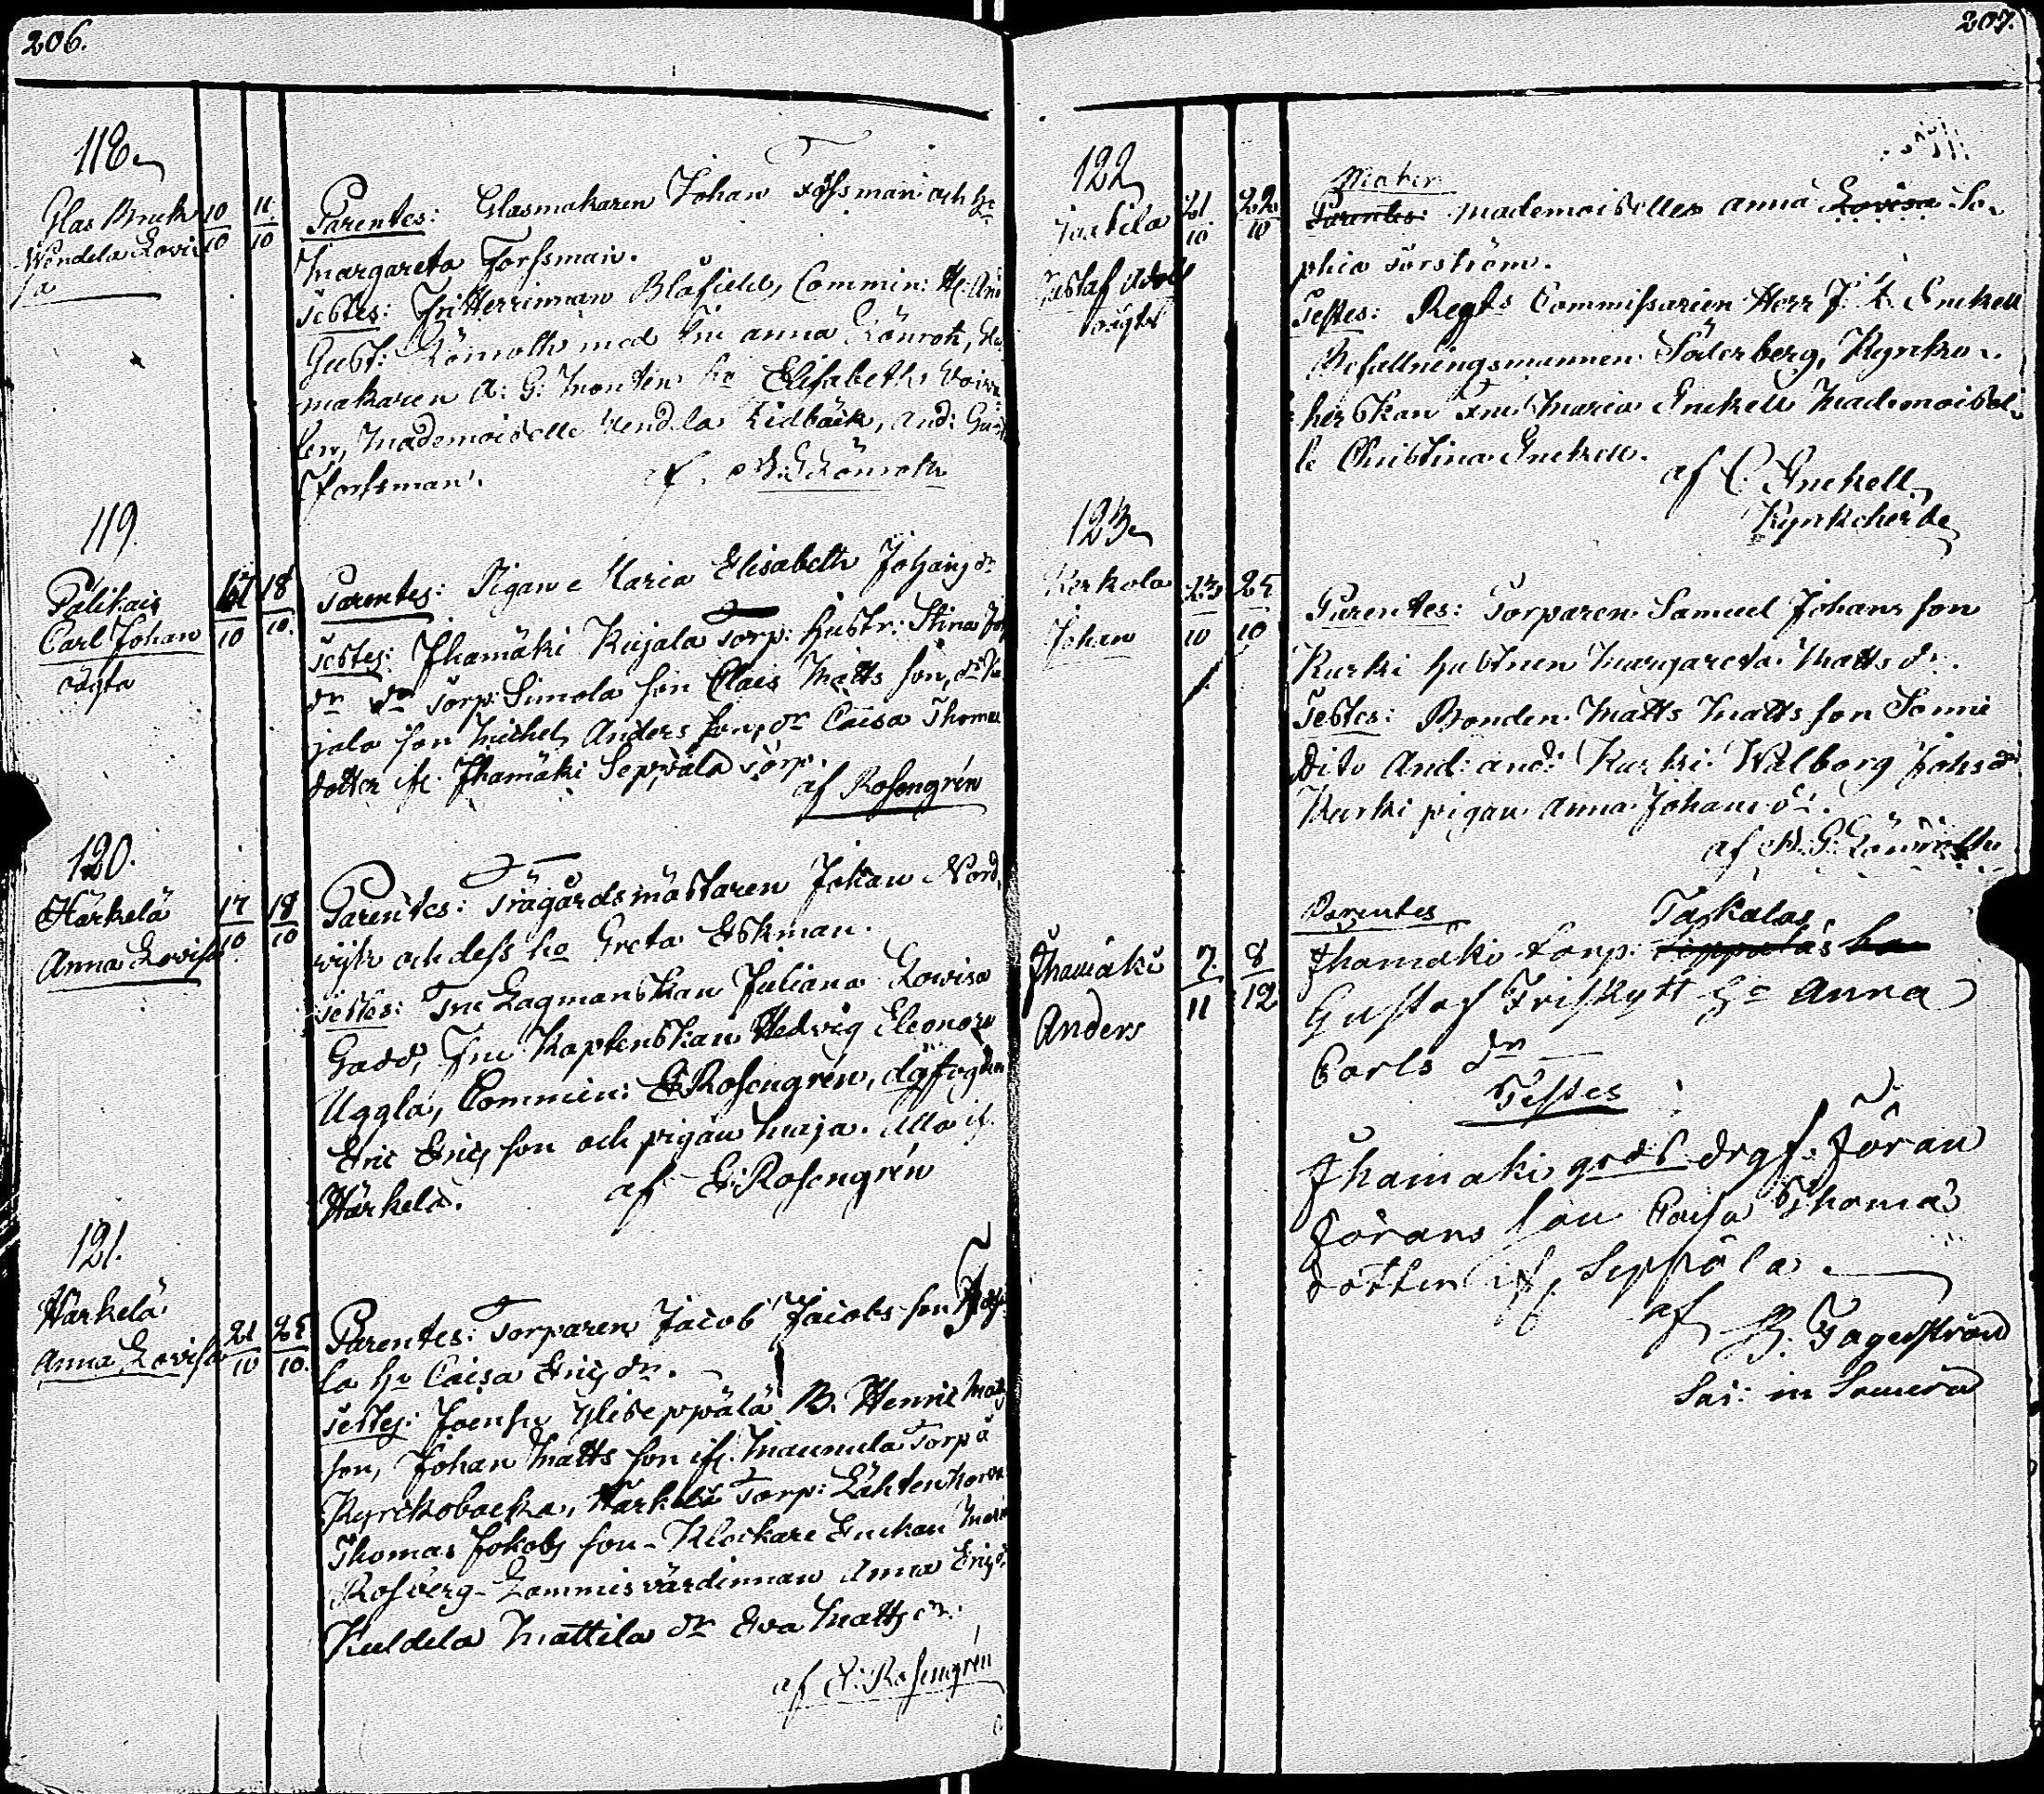 206.
118
Glas Bruk
Wendela Lovi
sa
10
10
11
10
Parentes: Glasmakaren Johan Forssman och h:
Margareta Forssman.
Testes: FriHerrinnan Blåfield, Commin: H: And
Gust: Lönroth med Fru Anna Lönroth,
makaren A: G: Montin h:o Elisabeth
len, Mademoiselle Vendela Lidbäck, And: Gust
Forssman.
af A: G Lönroth
119.
Palikais
Carl Johan
oägta
17
10
18
10.
Parentes: Pigan Maria Elisabeth Johansd:r
Testes: Jhamäki Kujala Torp: Hustr: Stina Joh
d:r d:o Torp: Simola son Clais Matts son, d:o Ku
jala son Michel Anders son, d:r Caisa Thomas
dotter if: Jhamäki Seppälä Torp.
af Rosengrén
120.
Härkelä
Anna Lovisa
17
10
18
10
Parentes: Trägårdsmästaren Johan Nord,
vijk och dess h:o Greta Ekman.
Testes: Fru Lagmanskan Juliana Lovisa
Gadd, Fru Kaptenskan Hedvig Eleonora
Uggla, Commin: E: Rosengrén,
Eric Erics son och pigan Maja. Alla if
Härkelä.
af E: Rosengrén
121.
Härkelä
Anna Lovisa
21
10
25
10.
Parentes: Torparen Jacob Jacobs son
la h:u Caisa Erics d:r.
Testes: Joensu Yliseppälä B. Henric Matts
son, Johan Matts son if: Maunula Torp å
Kyrckobacka, Härkälä Torp: Lähtenkorva
Thomas Jakobs son - Klockare Enckan Maria
Rosberg - Lammis värdinnan Anna Erics d:
Kuldila Mattila d:r Eva Matts d:r.
af E: Rosengrén
207.
122
Jaakila
Gustaf Adolf
oägta
21
10
22
10
Mater
Parentes: Mademoisellen Anna Lovisa So-
phia Torström.
Testes: Regts Commissarien Herr J: K Enckell
Befallningsmannen Söderberg, Kyrko-
herskan Fru Maria Enckell Mademoisel-
le Christina Enckell.
af C. Enckell
Kyrkoherde
123
Kerkola
Johan
23
10
25
10
Parentes: Torparen Samuel Johans son
Kurki hustrun Margareta Matts d:r.
Testes: Bonden Matts Matts son Sonni
Dito And: And: Kurki Walborg Johs d:r
Kurki pigan Anna Johans d:r.
af A. G: Lönroth
Jhamäki
Anders
7.
11
8
12
Parentes
Jhamäki torp: Taskalas
Gustaf Friskytt h:o Anna
Carls d:r
Testes
Jhamäki gods drgf. Jöran
Jörans son Caisa Thomas
dotter if Seppälä
af B: Fagerström
Sac: in Somero